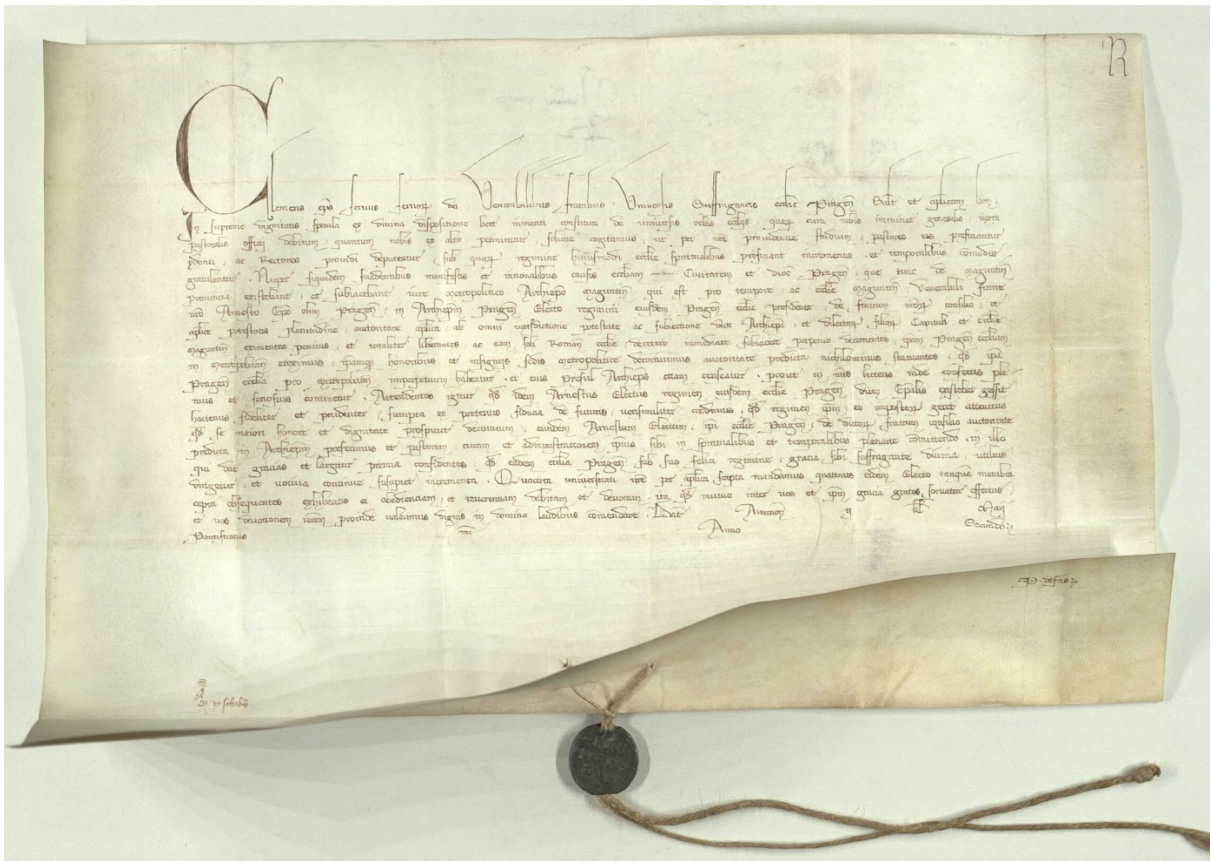 R
Clemens eps seruus seruor dei Venerabilibus fratribus Vniuersis Suffraganeis ecclie Pragen Salt et aplicam ben
In supreme dignitatis specula ex diuina dispositione licet inmeriti constituti de vniuersis orbis ecclijs quar cura nobis imminet generalis iuxta
pastoralis officij debitum quantum nobis ex alto permittitur solicite cogitamus ut per nre prouidentie studium pastores eis preficiantur
ydonei ac Rectores prouidi deputentur sub quor regimine huiusmodi ecclie spiritualibus proficiant incrementis et temporalibus comodis
gratulentur Nuper siquidem suadentibus manifestis et rationabilibus causis eccliam Ciuitatem et dioc Pragen que tunc de maguntin
prouincia existebant et subiacebant iure metropolitico Archiepo maguntin qui est pro tempore ac ecclie maguntin Venerabili fratre
nro Arnesto Epo olim Pragen in Archiepm Pragen Electo regimini eiusdem Pragen ecclie presidente de fratrum nror consilio et
aplice potestatis plenitudine auctoritate aplica ab omni iurisdictione potestate ac subiectione dicti Archiepi et dilector filior Capituli et ecclie
maguntin eximentes penitus et totaliter liberantes ac eam soli Roman ecclie decreto immediate subiacere ipam Pragen eccliam
in metropolitan ereximus ipamqz honoribus et insignijs sedis metropolitice decorauimus auctoritate predicta nichilominus statuentes qd ipa
Pragen ecclia pro metropolitan imperpetuum habeatur et eius Presul Archieps etiam censeatur prout in nris litteris inde confectis ple
nius et seriosius continetur Attendentes igitur qd idem Arnestus Electus regimen eiusdem ecclie Pragen dum Epalis existebat gessit
hactenus fideliter et prudenter sumpta ex preteritis fiducia de futuris verisimiliter credimus qd regimen ipm et imposter geret attentius
qd se maiori honore et dignitate prospiciet decoratum eundem Arnestum Electum ipi ecclie Pragen de dictor fratrum consilio auctoritate
predicta in Archiepm prefecimus et pastorem curam et administrationem ipsius sibi in spiritualibus et temporalibus plenarie comittendo in illo
qui dat gracias et largitur premia confidentes qd eadem ecclia Pragen sub suo felici regimine gracia sibi suffragante diuina utilius
dirigetur et votiua continue suscipiet incrementa Quocirca vniuersitati vre per aplica scripta mandamus quatinus eidem Electo tanqua membra
capiti obsequentes exhibeatis ei obedienciam et reuerentiam debitam et deuotam ita qd mutuo inter vos et ipm gracia gratos sortiatur effectus
et nos deuotionem vram proinde valeamus dignis in domino laudibus comendare Dat Auinion ij kl Maij
Pontificatus nri Anno Secundo